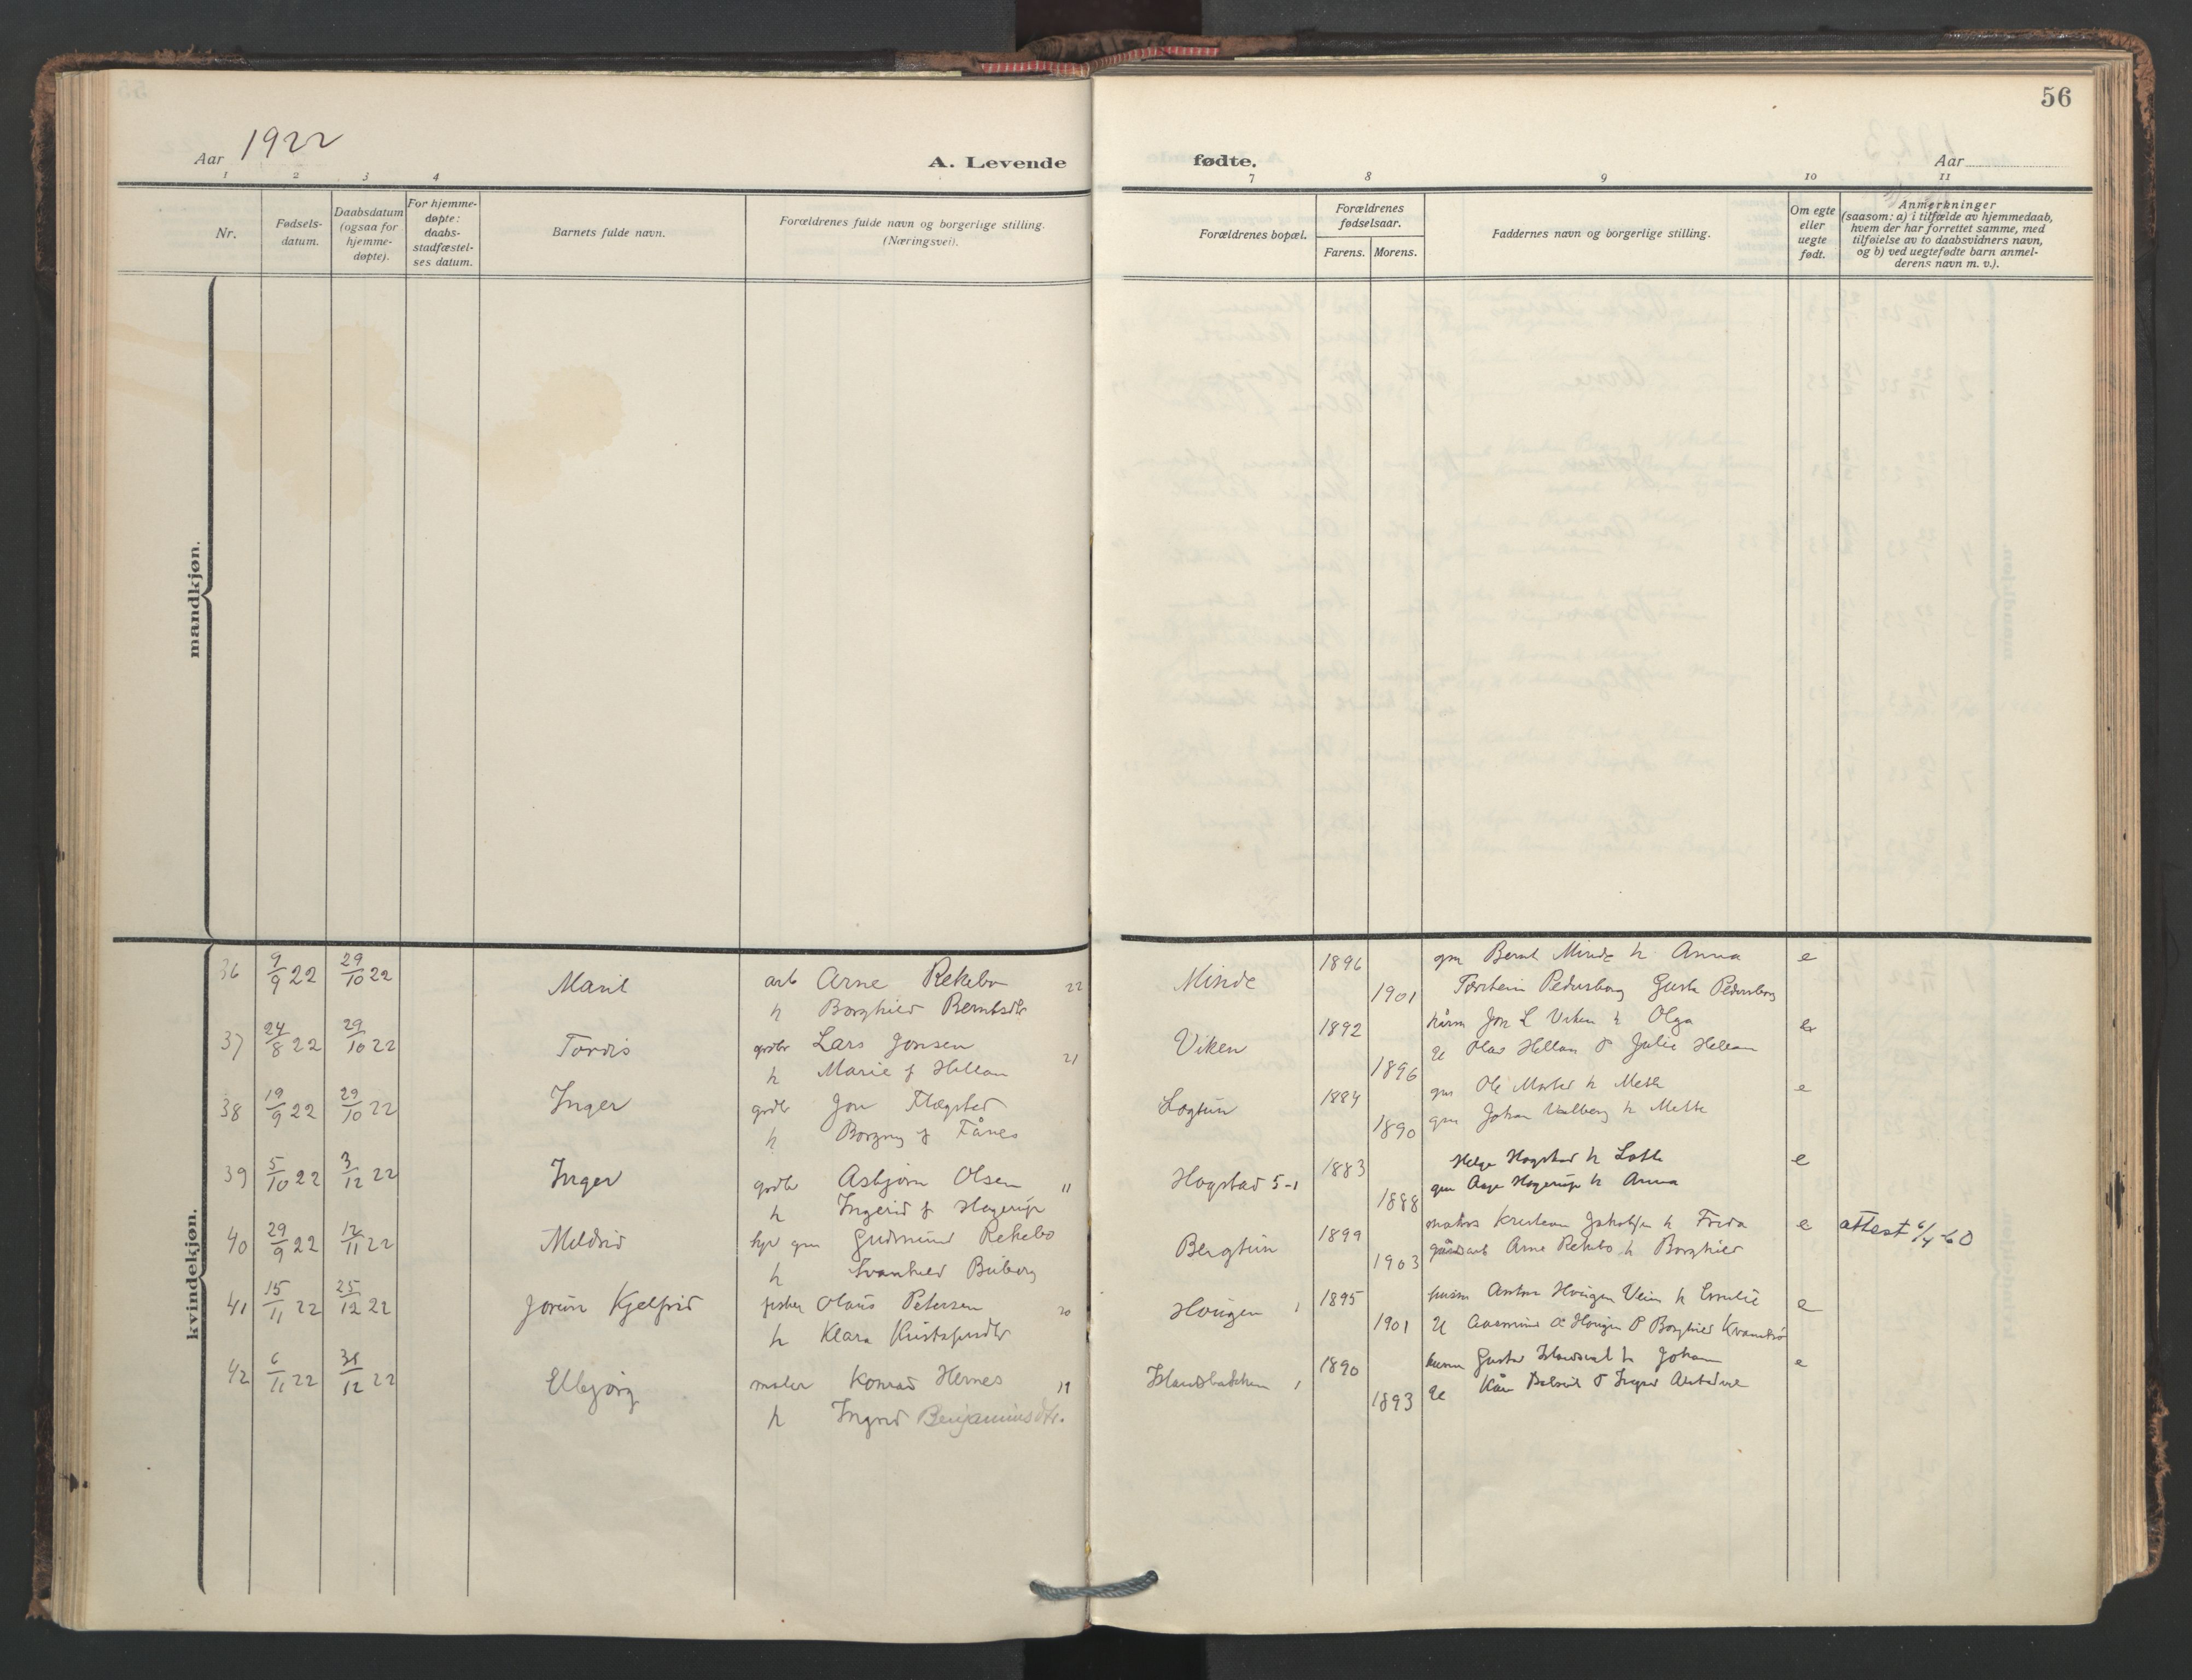 56
Aar 1922
A. Levende
fødte.
Aar
1 2 3 4
7 8 9 10 11
Nr.
Fødsels-
datum.
Daabsdatum
(ogsaa for
hjemme-
døpte).
For hjemme-
døpte:
daabs-
stadfæstel-
ses datum.
Barnets fulde navn.
Forældrenes fulde navn og borgerlige stilling.
(Næringsvei).
Forældrenes bopæl.
Forældrenes
fødselsaar.
Farens. Morens.
Faddernes navn og borgerlige stilling.
Om egte
eller
uegte
født.
Anmerkninger
(saasom: a) i tilfælde av hjemmedaab,
hvem der har forrettet samme, med
tilføielse av to daabsvidners navn,
og b) ved uegtefødte barn anmel-
derens navn m. v.).
mandkjøn.
kvindekjøn.
36 9/9 22 29/10 22 Marit arb Arne Rekebo 22 Minde 1896 gm Bernt Minde h Anna e
h Borghild Berntsdtr 1901 Torstein Pedersborg Gusta Pedersborg
37 24/8 22 29/10 22 Tordis grdbr Lars Jonsen 21 Viken 1892 Jon L Viken h Olga
h Marie f Hellan 1896 U Olav Hellan P Julie Hellan
38 19/9 22 29/10 22 Inger grdbr Jon Flægstad Logtun 1884 gm Ole h Mette e
h Borgny f Fånes 1890 gm Johan Valberg h Mette
39 5/10 22 3/12 22 Inger grdbr Asbjørn Olsen 11 Hogstad 5-1 1883 Helge Hogstad h Lotte e
h Ingerid f Hagerup 1888 gm Aage Hagerup h Anna
40 29/9 22 12/11 22 Meldrid gm Gudmund Rekebo Bergtun 1899 Kristian h Frida e attest 6/4-60
h Svanhild Buberg 1903 gårdsarb Arne Rekebo h Borghild
41 15/11 22 25/12 22 Jorun Kjelfrid fisker Olaus Petersen 20 Hougen 1 1895 husm Anton Hougen Vein h Emilie e
h Klara Kristofersdtr 1901 U Aasmund A Hougen P Borghild
42 6/11 22 31/12 22 Elbjørg maler Konrad Hernes 19 1 1890 husm Gustav h Johan e
h Ingrid Benjaminsdtr. 1893 U Kåre P Ingrid